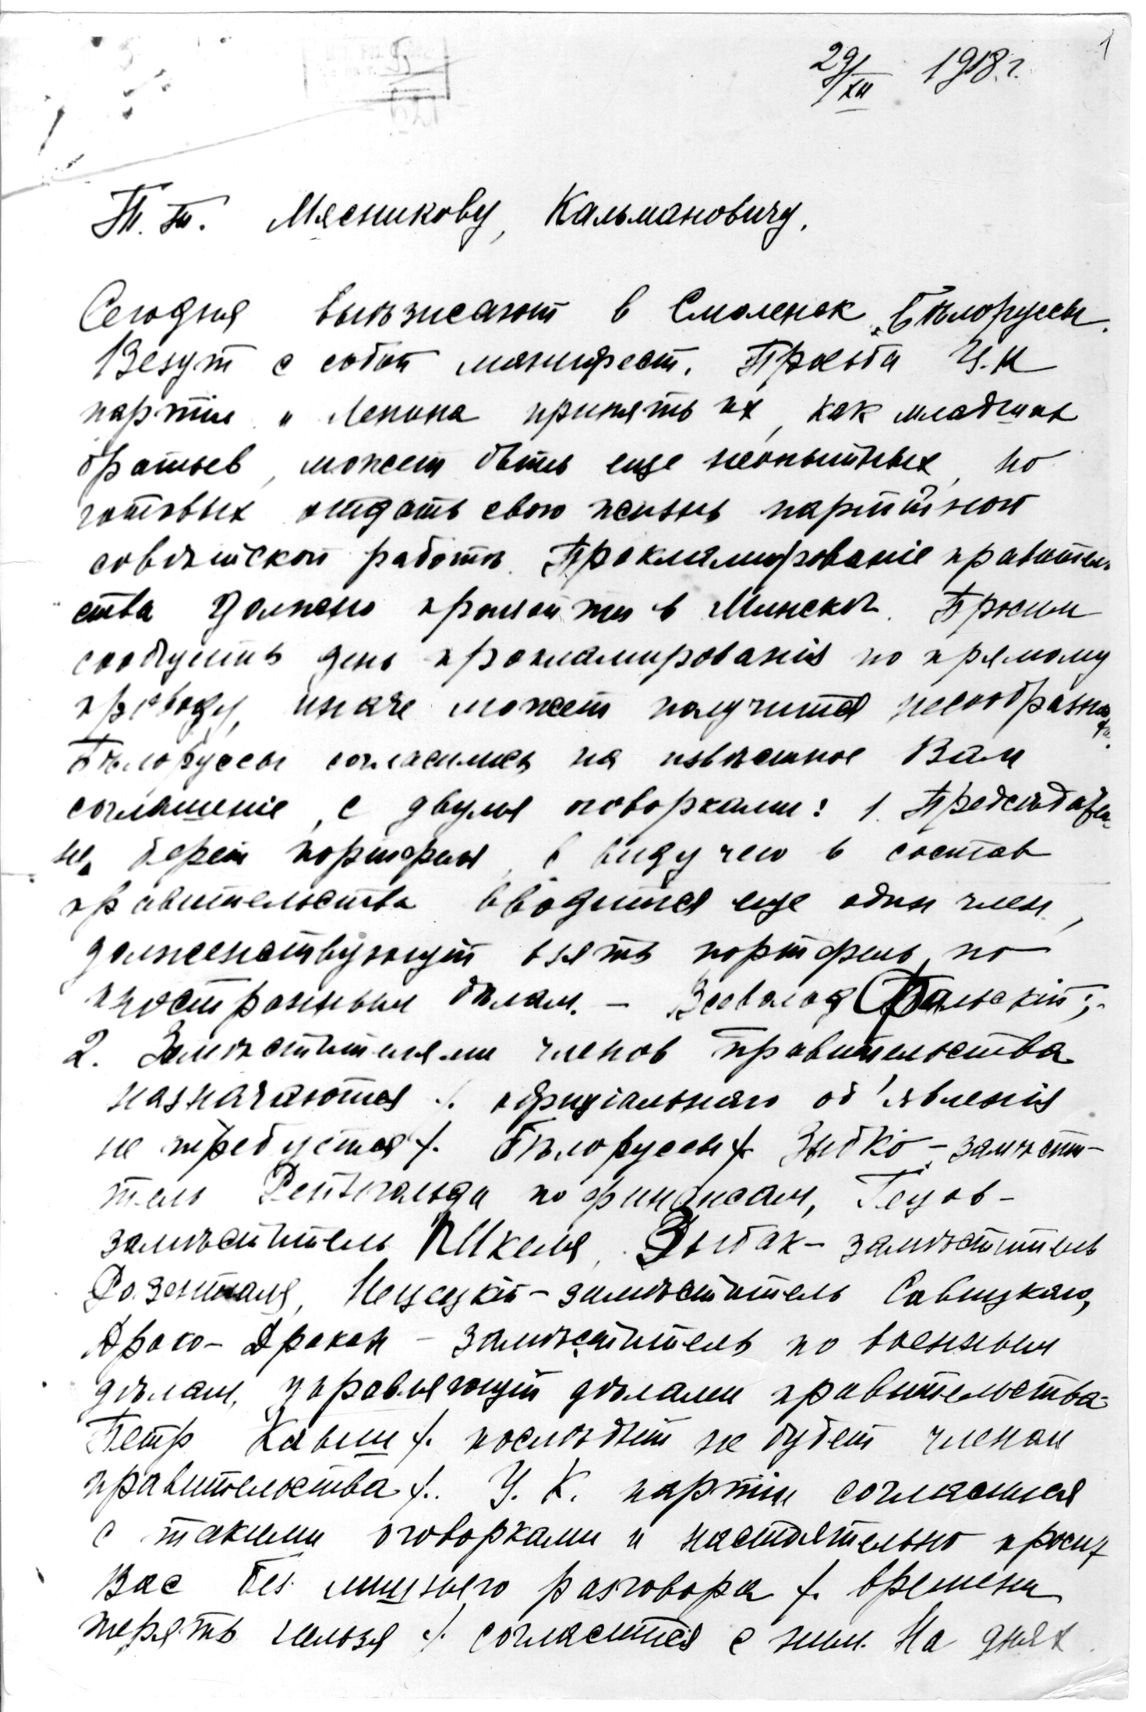 1
29/XII 1918 г.
Т.т. Мясникову, Кальмановичу.
Сегодня выѣзжают в Смоленск Бѣлоруссы.
Везут с собой манифест. Просьба Ц.К
партіи и Ленина принять их, как младших
братьев, может быть еще неопытных, но
готовых отдать свою жизнь партійной
совѣтской работѣ. Прокламированіе правитель
ства должно произойти в Минскѣ. Просим
сообщить день прокламированія по прямому
проводу, иначе может получится несообразность.
Бѣлоруссы согласились на извѣстное Вам
соглашеніе, с двумя оговорками: 1. Предсѣдатель
не берет портфеля, в виду чего в состав
правительства вводится еще один член,
долженствующій взять портфель по
иностранным дѣлам. – Всеволод Фальскій;
2. Замѣстителями членов правительства
назначаются /. оффиціального об'явленія
не требуется /. Бѣлоруссы /. Дыбко – замѣсти-
тель Рейнгольда по финансам, Гецов –
замѣститель Пикеля, Дыбак – замѣститель
Розенталя, Нецецкій – замѣститель Савицкаго,
Драко-Дракон – замѣститель по военным
дѣлам, управляющій дѣлами правительства-
Петр Кавш /. послѣдній не будет членом
правительства /. Ц.К. партіи согласился
с такими оговорками и настоятельно просит
Вас без лишнего разговора /. времени
терять нельзя /. согласится с ними. На днях